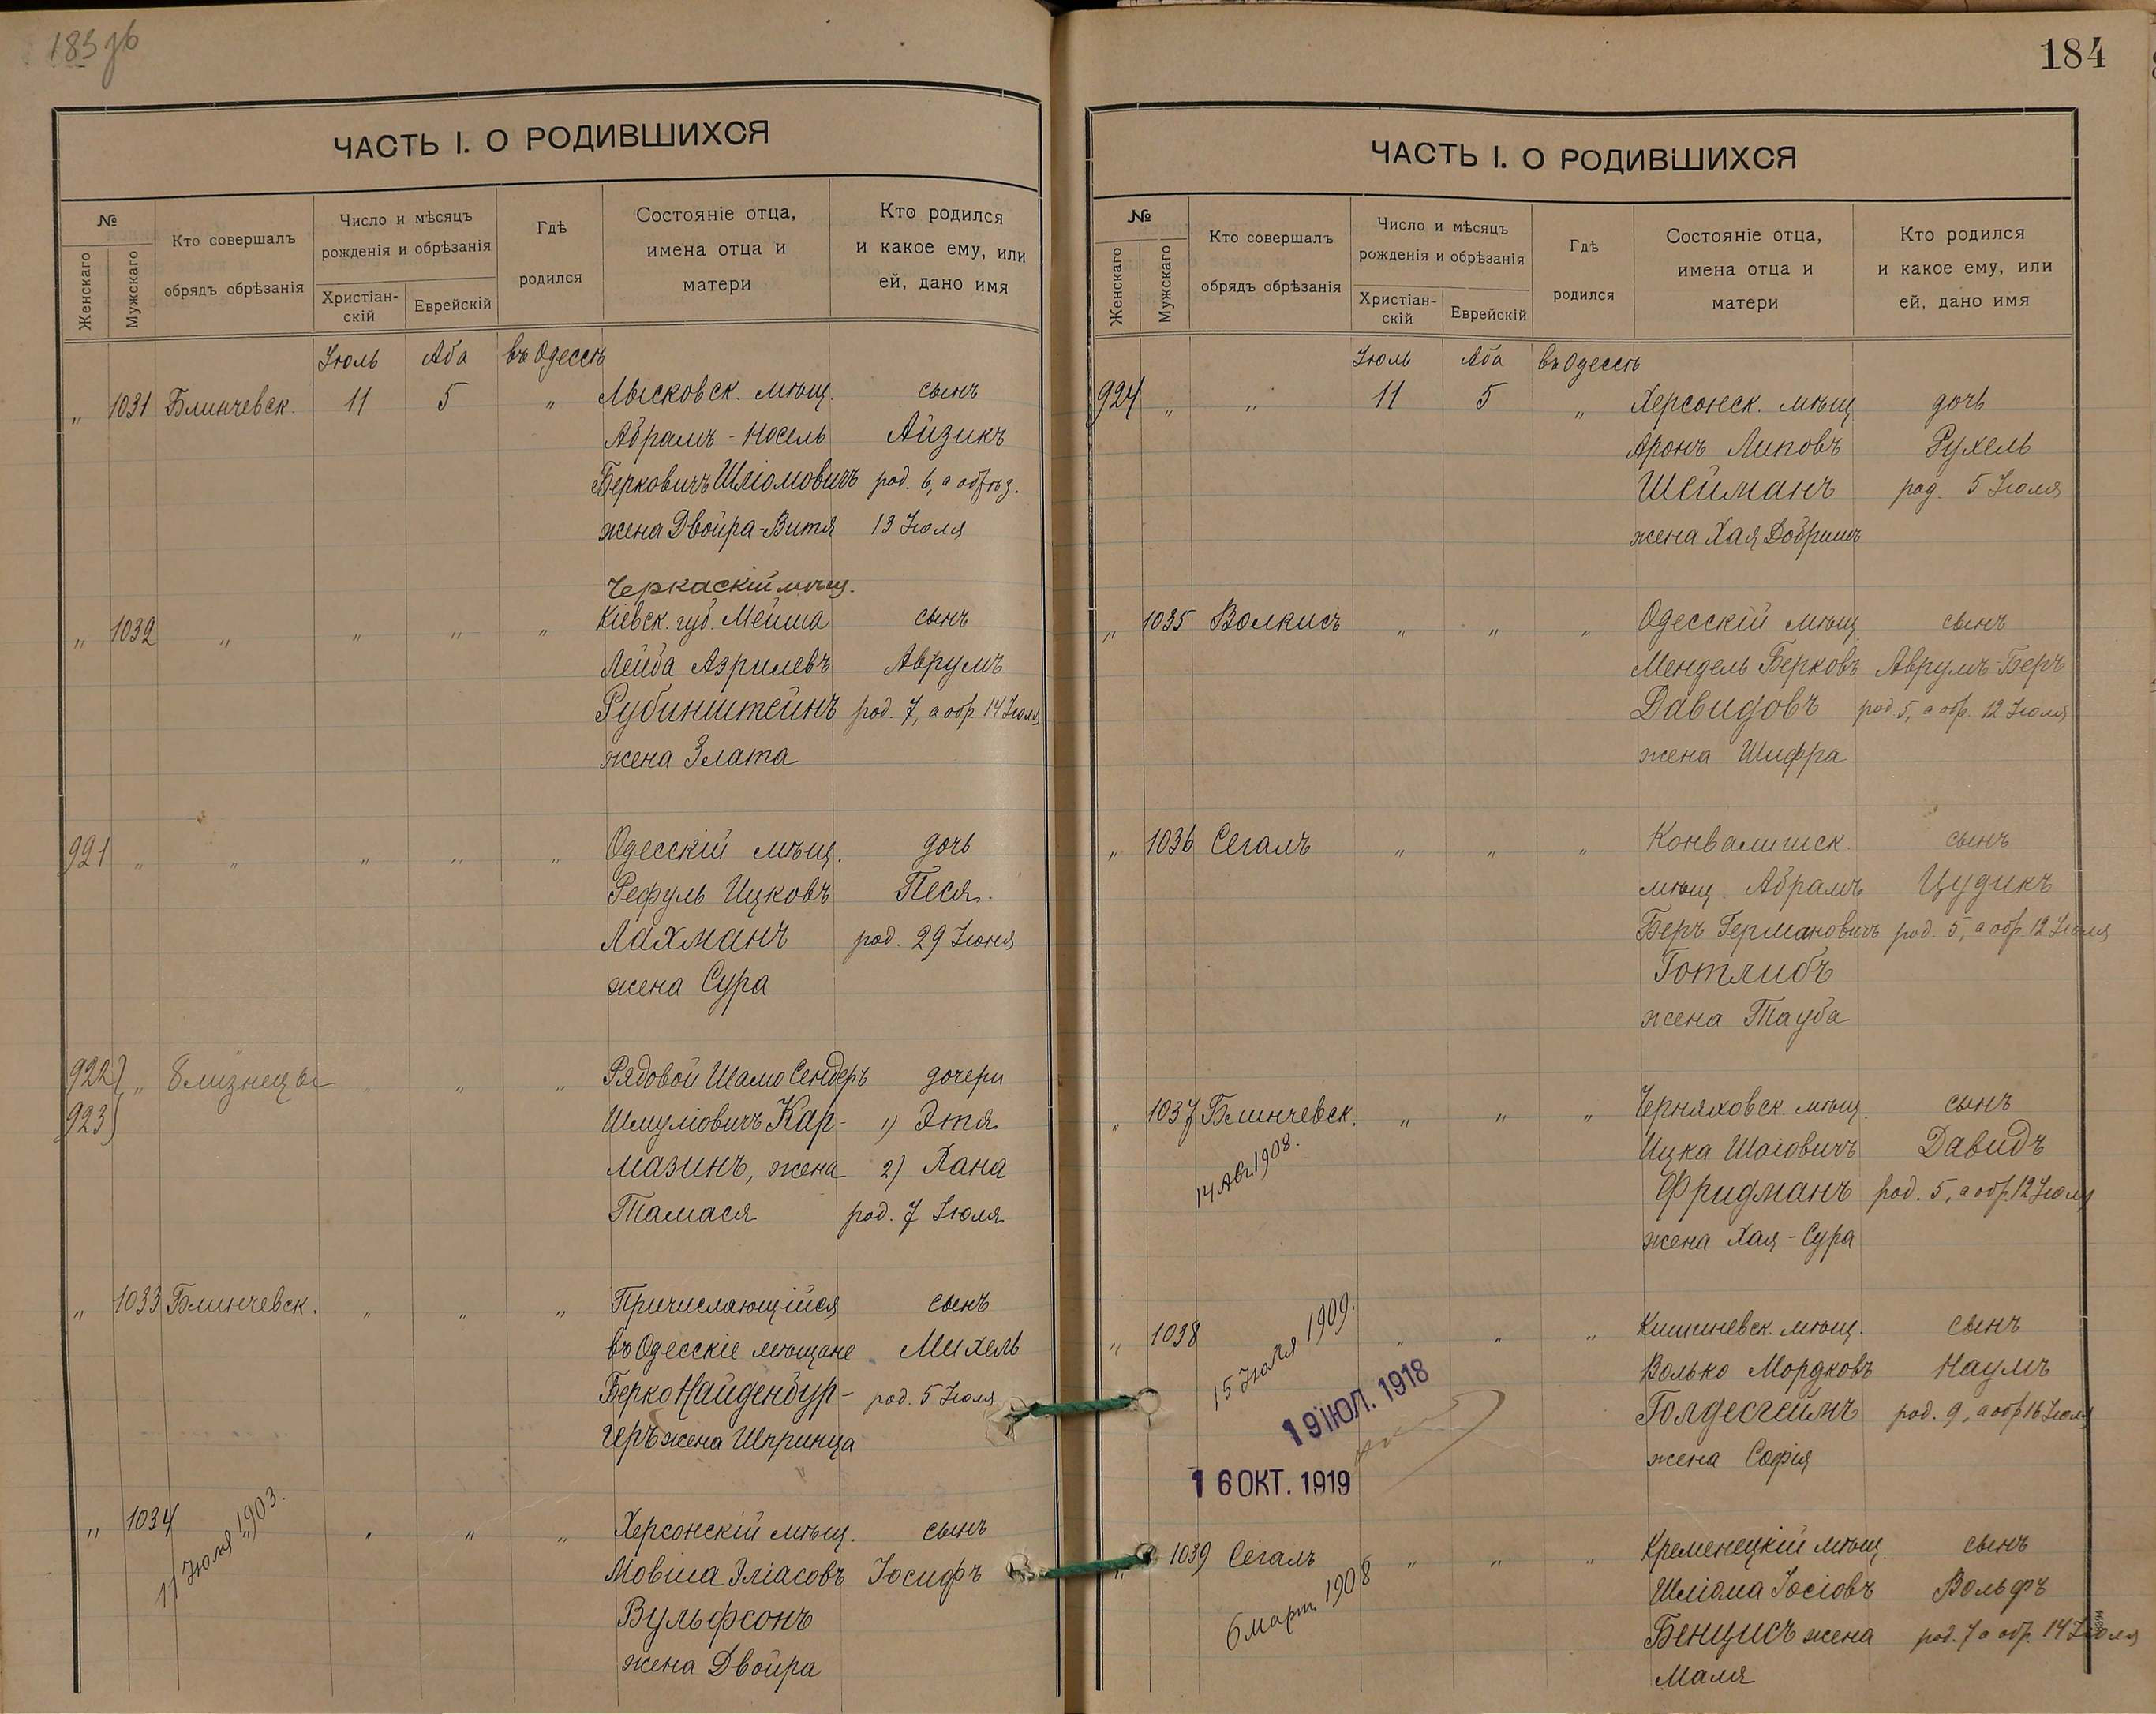 183 об
ЧАСТЬ I. О РОДИВШИХСЯ
№
Женскаго
Мужскаго
Кто совершалъ
обрядъ обрѣзанія
Число и мѣсяцъ
рожденія и обрѣзанія
Христіан-
скій
Еврейскій
Гдѣ
родился
Состояніе отца,
имена отца и
матери
Кто родился
и какое ему, или
ей, дано имя
Іюль Аба въ Одессѣ
„ 1031 Блинчевск. 11 5 „ Лысковск. мѣщ. сынъ
Абрамъ-Носель Айзикъ
Берковичъ Шліомовичъ род. 6, а обрѣз.
жена Двойра-Витя 13 Іюля
Черкаскій мѣщ.
„ 1032 „ „ „ „ Кіевск. губ. Мейша сынъ
Лейба Азрилевъ Аврумъ
Рубинштейнъ род. 7, а обр. 14 Іюля
жена Злата
921 „ „ „ „ „ Одесскій мѣщ. дочь
Рефуль Ицковъ Песя
Лахманъ род. 29 Іюня
жена Сура
922 } „ близнецы „ „ Рядовой Шамо Сендеръ дочери
923 } Шмуліовичъ Кар- 1) Этя
мазинъ, жена 2) Хана
Тамася род. 7 Іюля
„ 1033 Блинчевск. „ „ „ Причисляющійся сынъ
въ Одесскіе мѣщане Михель
Берко Найденбур- род. 5 Іюля
геръ жена Шпринца
„ 1034 „ „ „ „ Херсонскій мѣщ. сынъ
11 Іюля 1903.
Мовша Эліасовъ Іосифъ
Вульфсонъ
жена Двойра
184
ЧАСТЬ I. О РОДИВШИХСЯ
№
Женскаго
Мужскаго
Кто совершалъ
обрядъ обрѣзанія
Число и мѣсяцъ
рожденія и обрѣзанія
Христіан-
скій
Еврейскій
Гдѣ
родился
Состояніе отца,
имена отца и
матери
Кто родился
и какое ему, или
ей, дано имя
Іюль Аба въ Одессѣ
924 „ „ 11 5 „ Херсонск. мѣщ. дочь
Аронъ Липовъ Рухель
Шейманъ род. 5 Іюля
жена Хая Добришъ
„ 1035 Волкисъ „ „ „ Одесскій мѣщ. сынъ
Мендель Берковъ Аврумъ-Беръ
Давидовъ род. 5, а обр. 12 Іюля
жена Шифра
„ 1036 Сегалъ „ „ „ Конвалишск. сынъ
мѣщ. Абрамъ Цудикъ
Беръ Германовичъ род. 5, а обр. 12 Іюля
Готлибъ
жена Тауба
„ 1037 Блинчевск. „ „ „ Черняховск. мѣщ. сынъ
14 Авг. 1908.
Ицка Шаіовичъ Давидъ
Фридманъ род. 5, а обр. 12 Іюля
жена Хая-Сура
„ 1038 „ „ „ Кишиневск. мѣщ. сынъ
15 Іюля 1909.
Волько Мордковъ Наумъ
Голдесгеймъ род. 9, а обр. 16 Іюля
жена Софія
19 ІЮЛ. 1918
16 ОКТ. 1919
„ 1039 Сегалъ „ „ „ Кременецкій мѣщ. сынъ
6 март. 1908
Шліома Іосіовъ Вольфъ
Бенцисъ жена род. 7 а обр. 14 Іюля
Маля